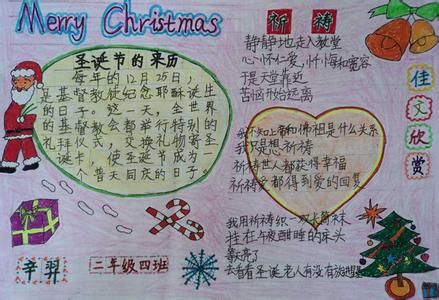 Merry Christmas
圣诞节的来历
每年的12月25日，
是基督教徒纪念耶酥诞生
的日子。这一天，全世界
的基督教会都举行特别的
礼拜仪式，交换礼物寄圣
诞卡，使圣诞节成为一
个普天同庆的日子。
祈祷
静静地走入教堂
心怀仁爱，忏悔和宽容
于是天堂靠近
苦恼开始远离
我不知上帝和佛祖是什么关系
我只是想祈祷
祈祷世人都获得幸福
祈祷爱都得到爱的回复
我用祈祷织一双长筒袜
挂在午夜甜睡的床头
天亮了
去看看圣诞老人有没有放
佳文欣赏
辛羿
二年级四班